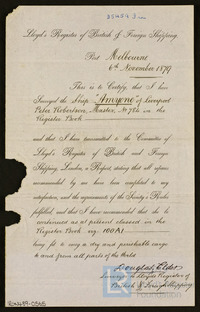 Lloyd's Register of British & Foreign Shipping.
Port Melbourne
6th November 1879
This is to Certify, that I have
Surveyed the Ship "Amyone" of Liverpool
Peter Robertson, Master, No 786 in the
Register Book
and that I have transmitted to the Committee of
Lloyd's Register of British and Foreign
Shipping, London, a Report, stating that all repairs
recommended by me have been completed to my
satisfaction, and the requirements of the Society's Rules
fulfilled, and that I have recommended that she be
continued as at present classed in the
Register Book viz. 100A1
being fit to carry dry and perishable cargo
to and from all parts of the World
Douglas Elder
Surveyor to Lloyd's Register of
British & Foreign Shipping